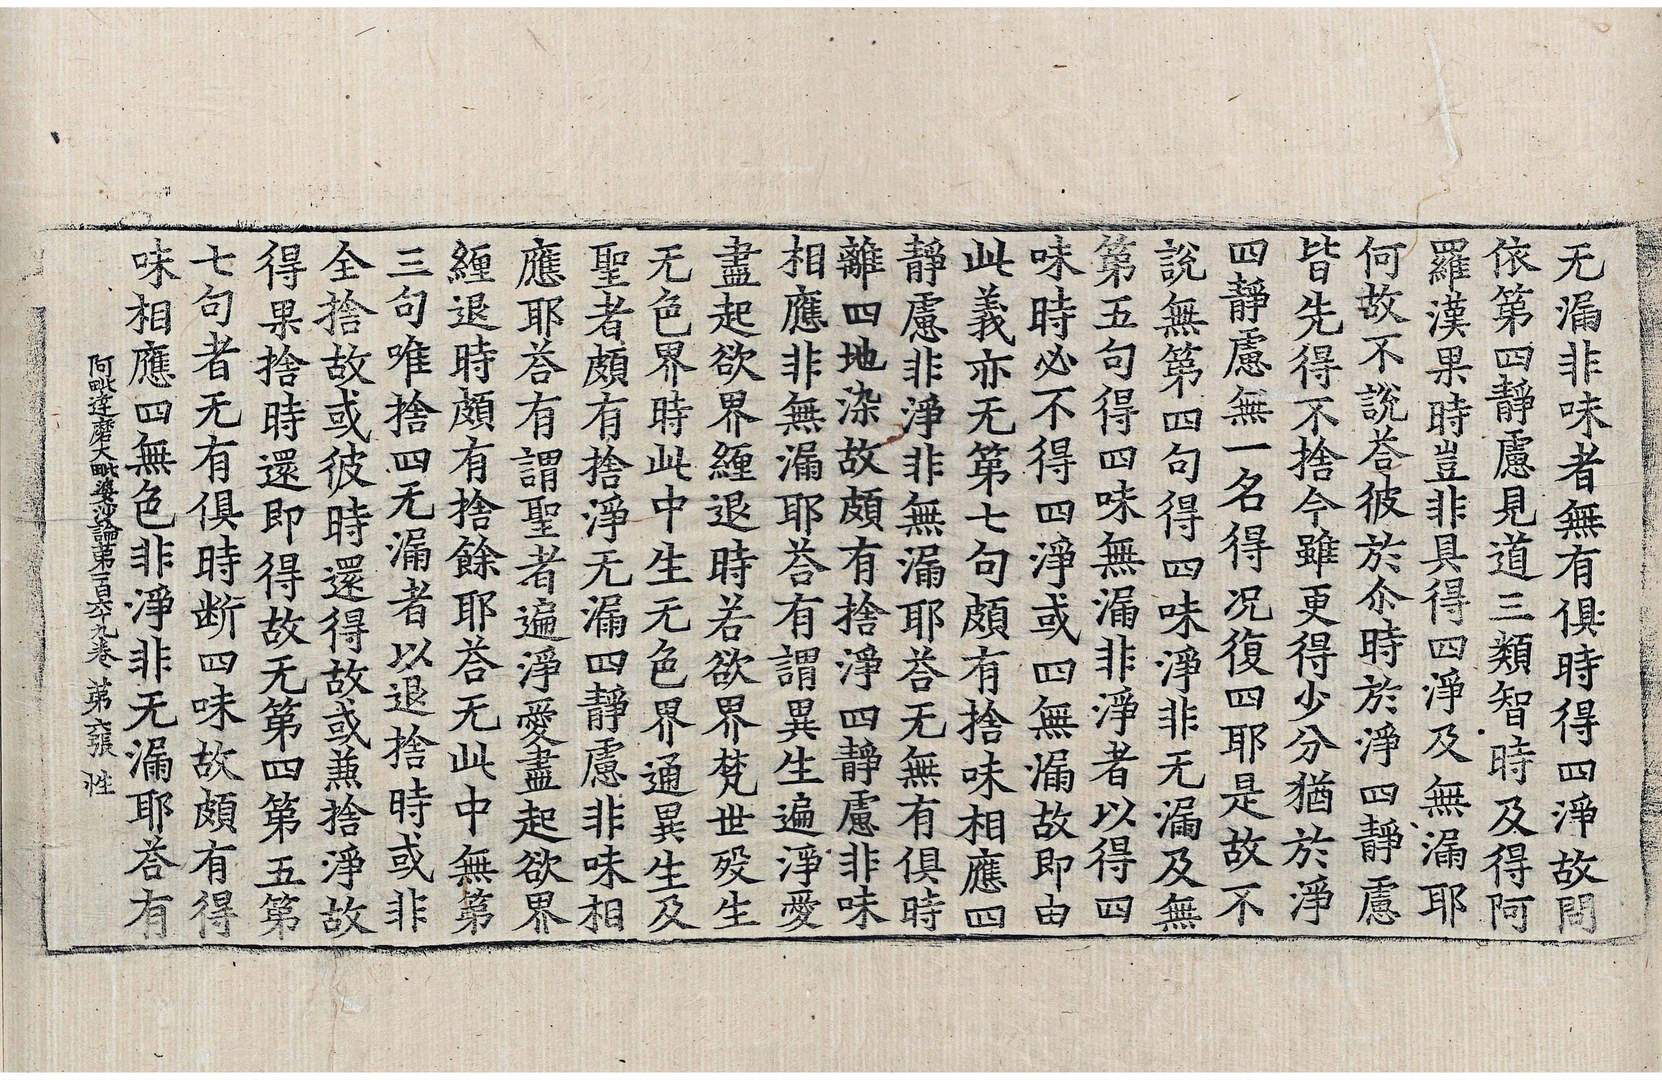 无漏非味者無有俱時得四淨故問
依第四靜慮見道三類智時及得阿
羅漢果時豈非具得四淨及無漏耶
何故不說荅彼於尒時於淨四靜慮
皆先得不捨今雖更得少分猶於淨
四靜慮無一名得况復四耶是故不
說無第四句得四味淨非无漏及無
第五句得四味無漏非淨者以得四
味時必不得四淨或四無漏故即由
此義亦无第七句頗有捨味相應四
靜慮非淨非無漏耶荅无無有俱時
離四地染故頗有捨淨四靜慮非味
相應非無漏耶荅有謂異生遍淨愛
盡起欲界纏退時若欲界梵世歿生
无色界時此中生无色界通異生及
聖者頗有捨淨无漏四靜慮非味相
應耶荅有謂聖者遍淨愛盡起欲界
纏退時頗有捨餘耶荅无此中無第
三句唯捨四无漏者以退捨時或非
全捨故或彼時還得故或兼捨淨故
得果捨時還即得故无第四第五第
七句者无有俱時断四味故頗有得
味相應四無色非淨非无漏耶荅有
阿毗達磨大毗婆沙論第一百六十九卷 第六張 性